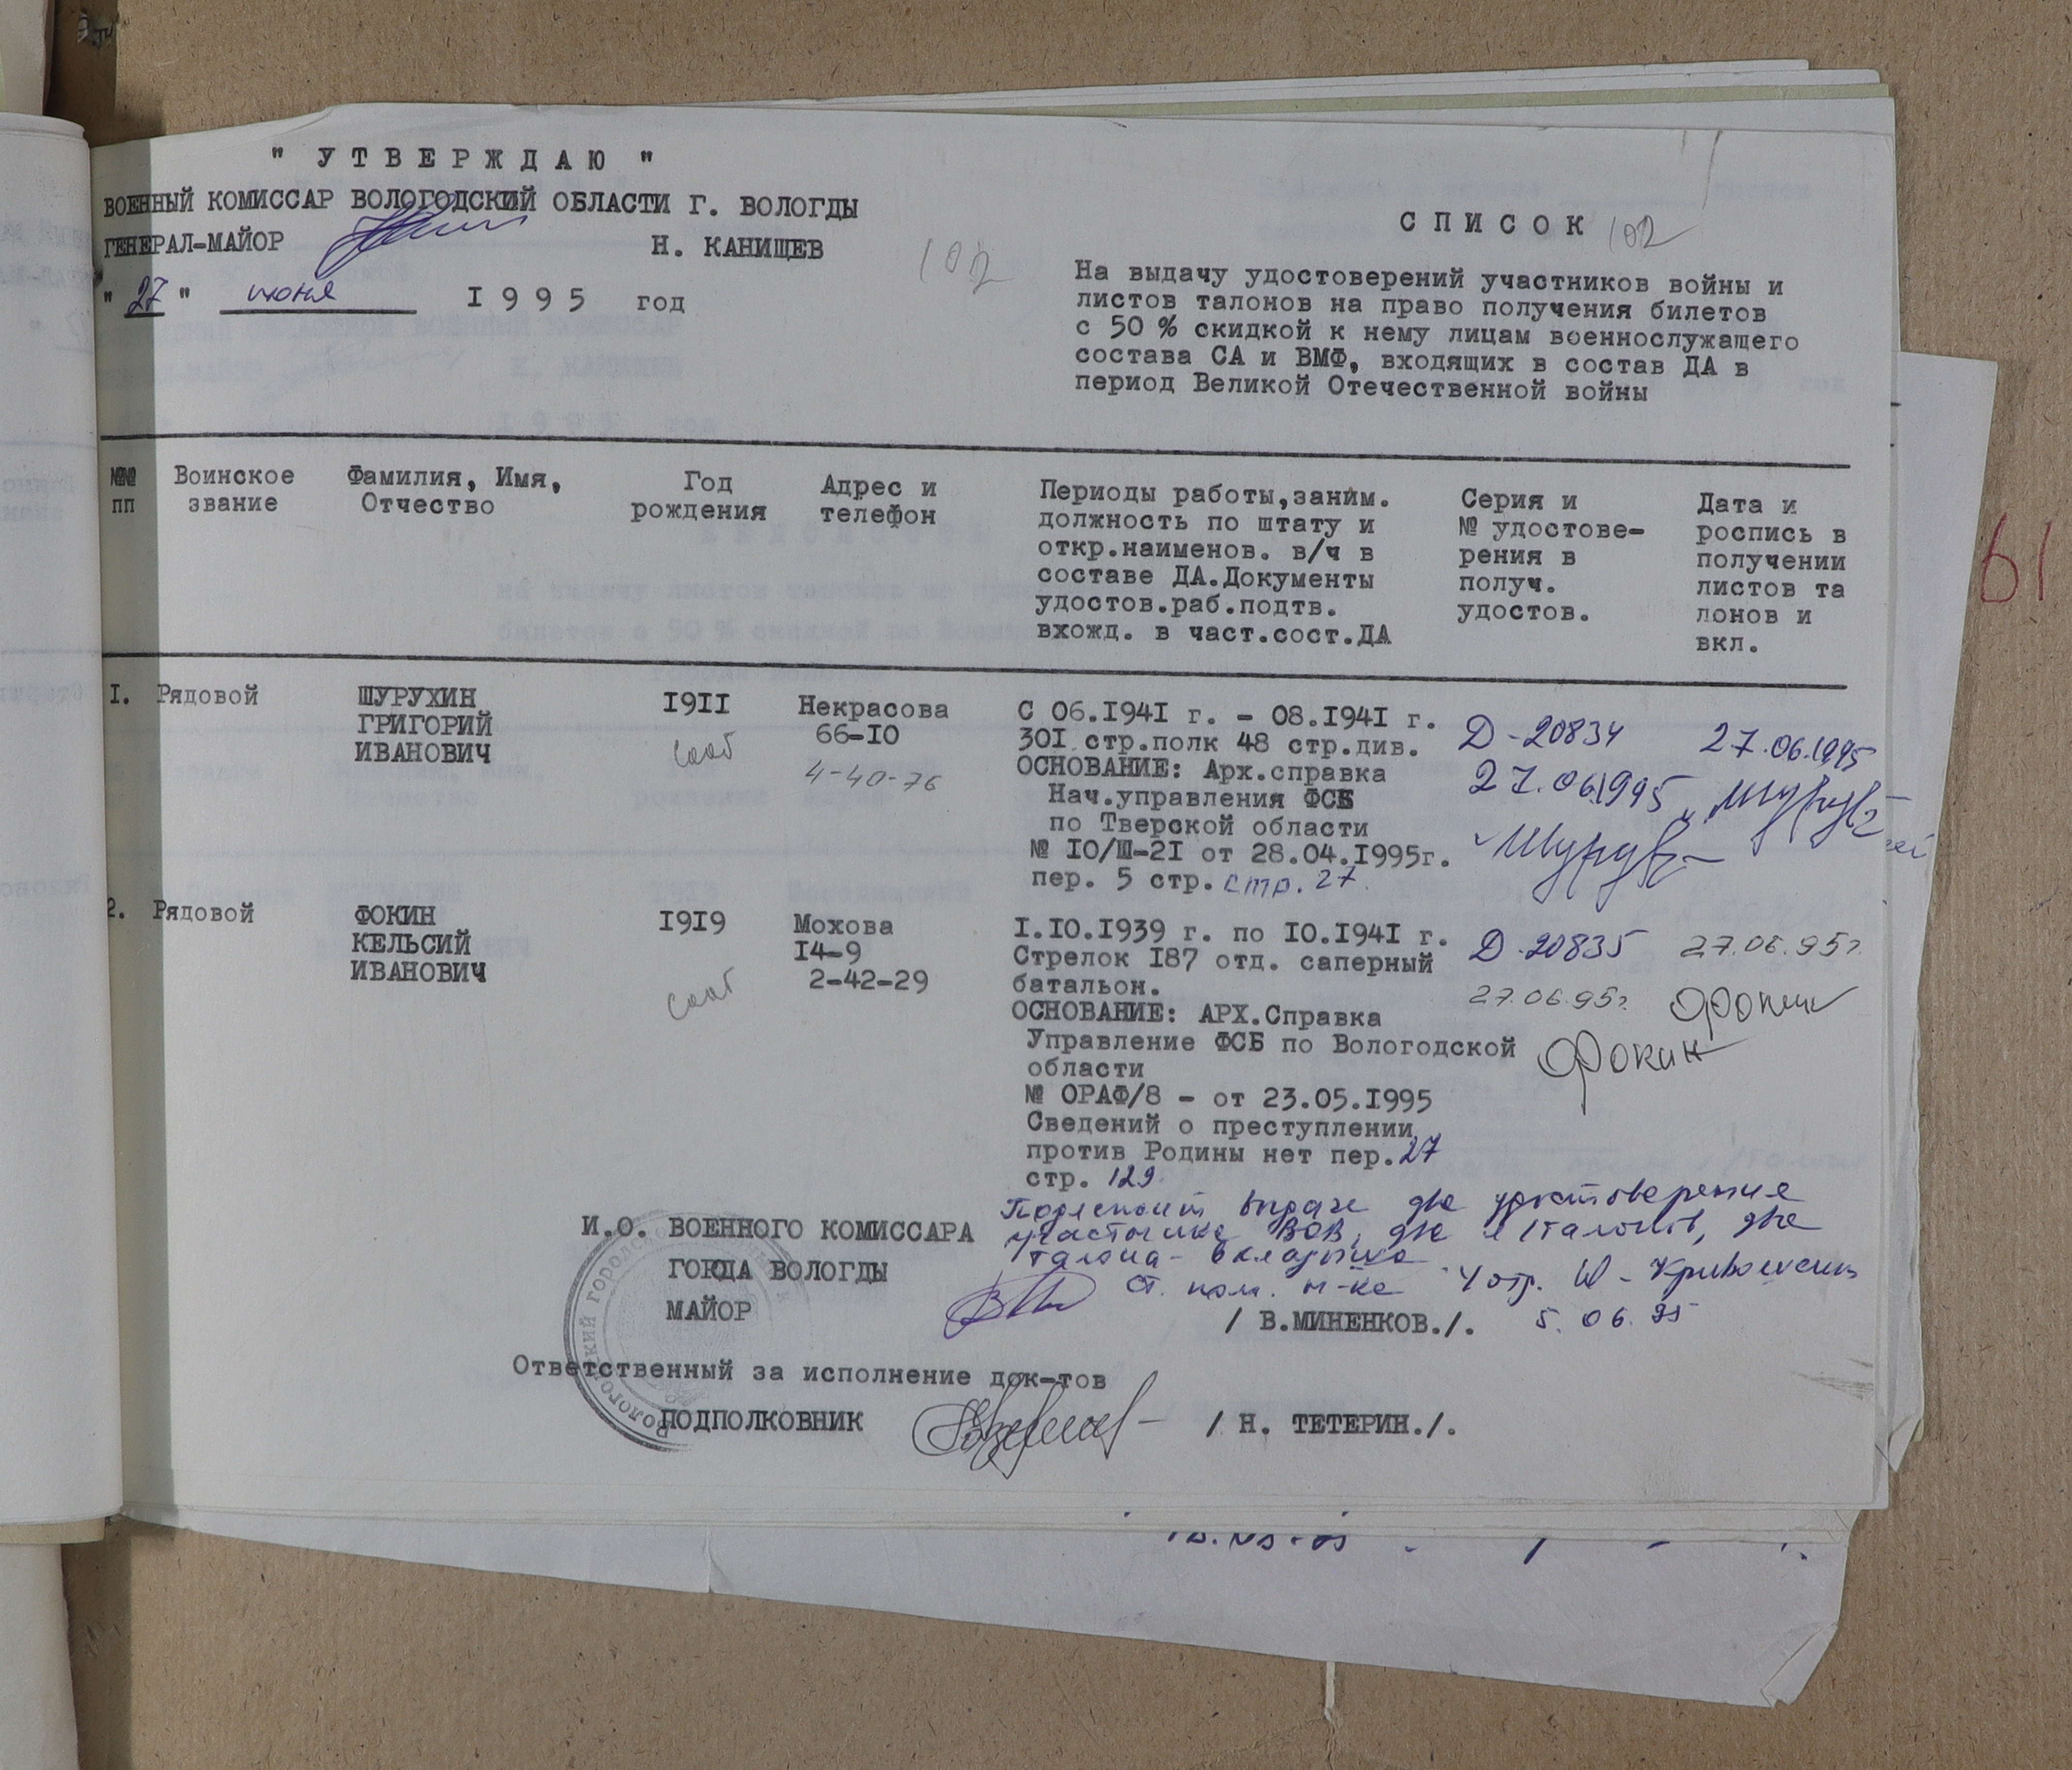 " У Т В Е Р Ж Д А Ю "
ВОЕННЫЙ КОМИССАР ВОЛОГОДСКИЙ ОБЛАСТИ Г. ВОЛОГДЫ
ГЕНЕРАЛ-МАЙОР Н. КАНИЩЕВ
" 27 " июня I 9 9 5 год
102
С П И С О К 102
На выдачу удостоверений участников войны и
листов талонов на право получения билетов
с 50 % скидкой к нему лицам военнослужащего
состава СА и ВМФ, входящих в состав ДА в
период Великой Отечественной войны
№№ пп
Воинское звание
Фамилия, Имя, Отчество
Год рождения
Адрес и телефон
Периоды работы,заним.
должность по штату и
откр.наименов. в/ч в
составе ДА.Документы
удостов.раб.подтв.
вхожд. в част.сост.ДА
Серия и
№ удостове-
рения в
получ.
удостов.
Дата и
роспись в
получении
листов та
лонов и
вкл.
61
I. Рядовой
ШУРУХИН
ГРИГОРИЙ
ИВАНОВИЧ
I9II
Некрасова
66-I0
4-40-76
С 06.I94I г. - 08.I94I г.
30I стр.полк 48 стр.див.
ОСНОВАНИЕ: Арх.справка
Нач.управления ФСБ
по Тверской области
№ I0/Ш-2I от 28.04.I995г.
пер. 5 стр. стр. 27.
Д-20834
27.06.1995
27.06.1995
2. Рядовой
ФОКИН
КЕЛЬСИЙ
ИВАНОВИЧ
I9I9
Мохова
I4-9
2-42-29
I.I0.I939 г. по I0.I94I г.
Стрелок I87 отд. саперный
батальон.
ОСНОВАНИЕ: АРХ.Справка
Управление ФСБ по Вологодской
области
№ ОРАФ/8 - от 23.05.I995
Сведений о преступлении
против Родины нет пер.27
стр. 129.
Д-20835
27.06.95г.
27.06.95г.
Фокин
Фокин
Подлежит выдаче два удостоверения
участника ВОВ, два л/талонов, два
талона-вкладыша
Ст. пом. н-ка 4 отд.
5.06.95
И.О. ВОЕННОГО КОМИССАРА
ГОРОДА ВОЛОГДЫ
МАЙОР / В.МИНЕНКОВ./.
Ответственный за исполнение док-тов
ПОДПОЛКОВНИК / Н. ТЕТЕРИН./.